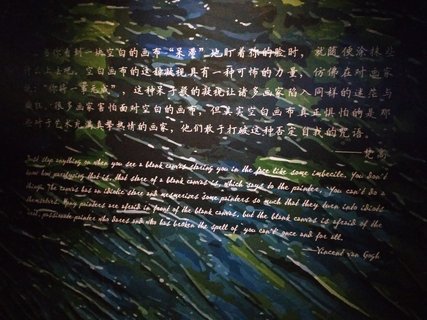 当你看到一块空白的画布“呆滞”地盯着你的脸时，就随便涂抹些
什么上去吧。空白画布的这种凝视具有一种可怕的力量，仿佛在对画家
说：“你将一事无成”，这种呆子般的凝视让诸多画家陷入同样的迷茫与
疯狂。很多画家害怕面对空白的画布，但其实空白画布真正惧怕的是那
些对于艺术充满真挚热情的画家，他们敢于打破这种否定自我的咒语。
——梵高
Just slap anything on when you see a blank canvas staring you in the face like some imbecile. You don't
know how paralyzing that is, that stare of a blank canvas is, which says to the painter, 'You can't do a
thing'. The canvas has an idiotic stare and mesmerizes some painters so much that they turn into idiots
themselves. Many painters are afraid in front of the blank canvas, but the blank canvas is afraid of the
real, passionate painter who dares and who has broken the spell of 'you can't' once and for all.
—Vincent van Gogh